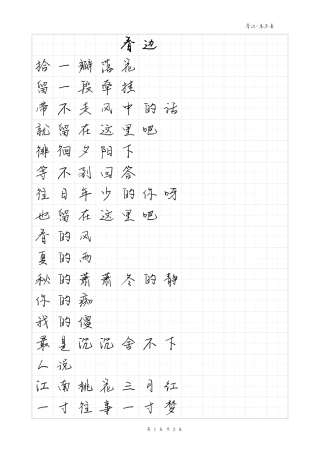 春边
拾一瓣落花
留一段牵挂
带不走风中的话
就留在这里吧
徘徊夕阳下
等不到回答
往日年少的你呀
也留在这里吧
春的风
夏的雨
秋的萧萧冬的静
你的痴
我的傻
最是沉沉舍不下
人说
江南桃花三月红
一寸往事一寸梦
第 1 页 共 2 页